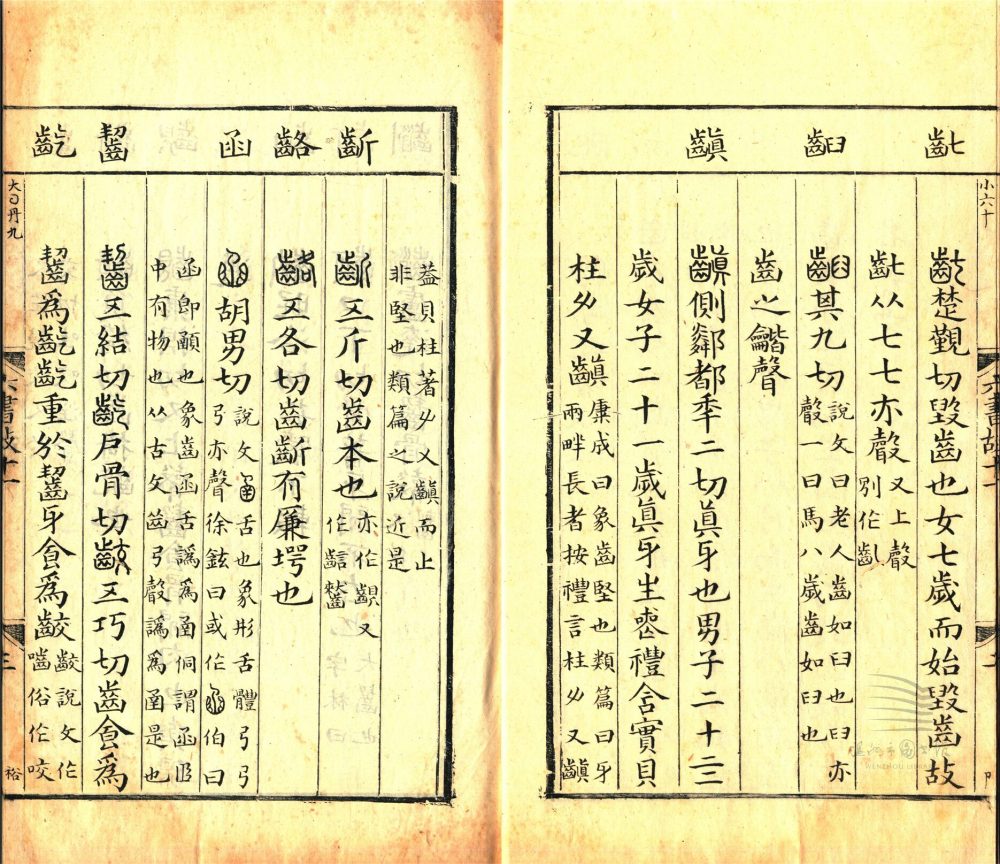 齔 齨 齻
小六十
齔楚覲切毀齒也女七歲而始毀齒故
齔从七七亦聲又上聲
別作齓
齨其九切說文曰老人齒如臼也臼亦
聲一曰馬八歲齒如臼也
齒之齸聲
齻側鄰都秊二切真牙也男子二十三
歲女子二十一歲真牙生喪禮含實貝
柱夕又齻康成曰象齒堅也類篇曰牙
兩畔長者按禮言柱夕又齻
溫州市圖書館
WENZHOU LIBRARY
齗 㗉 函 齧 齕
蓋貝柱著夕又齻而止
非堅也類篇之說近是
齗五斤切齒本也亦作齦又
作
五各切齒齗有廉堮也
胡男切說文舌也象形舌體弓弓
弓亦聲徐鉉曰或作 伯曰
函卽顄也象齒函舌譌爲 侗謂函臣
中有物也从古文齒弓聲譌爲 是也
齧五結切齕戶骨切齩五巧切齒食爲
齧爲齕齕重於齧牙食爲齩齩說文作
嚙俗作咬
大 丹九
六書故十一
三
裕